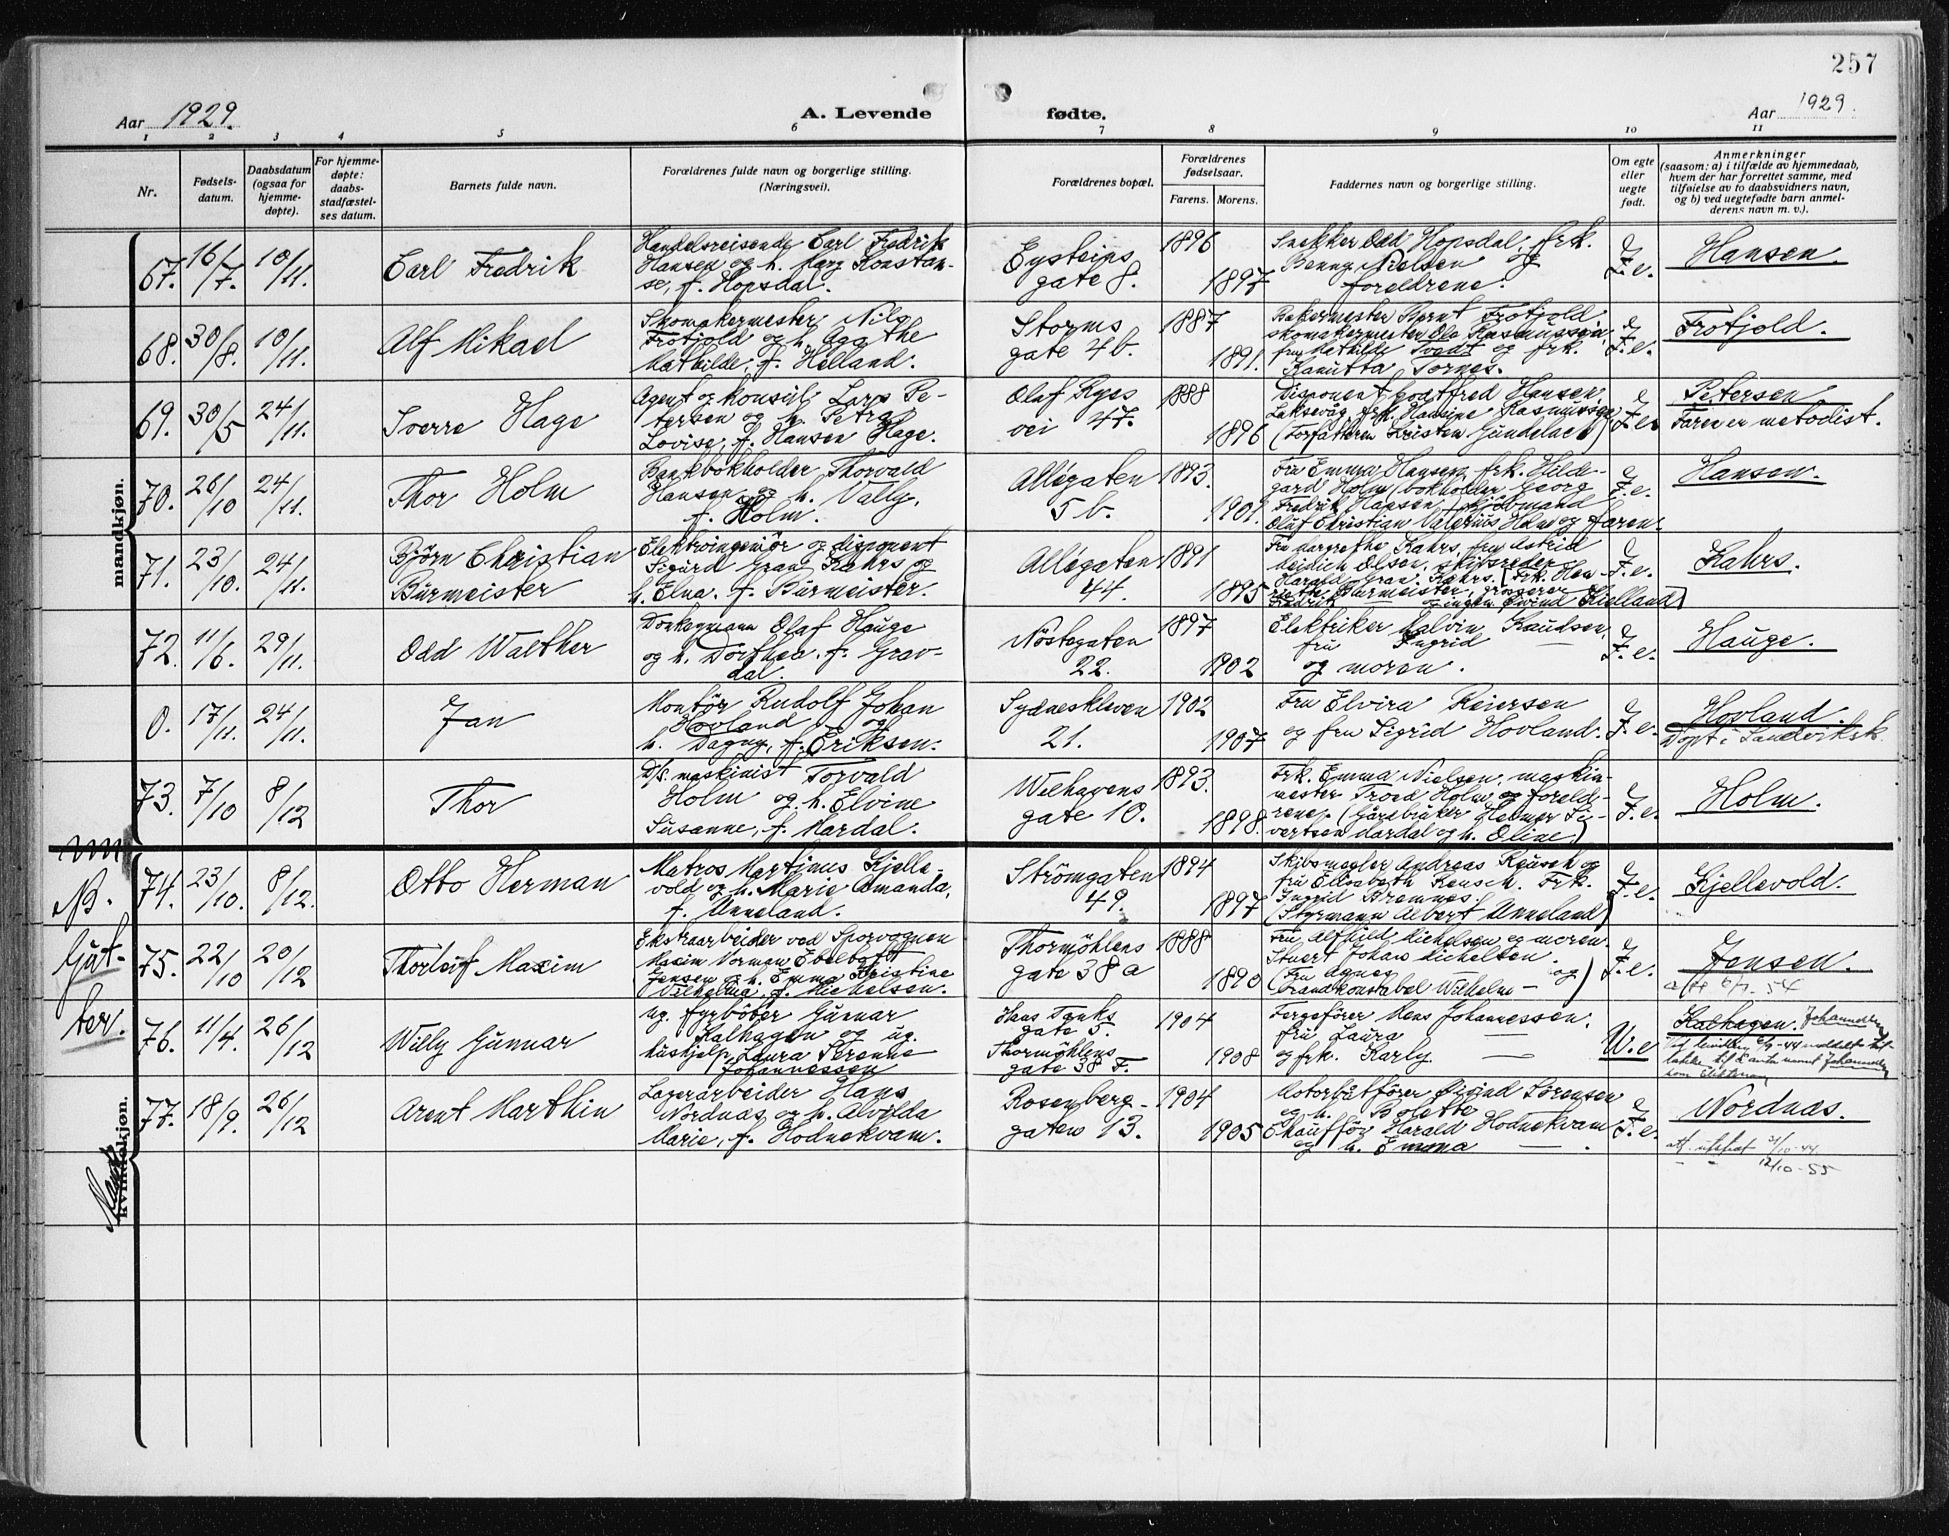 257
Aar 1929.
A. Levende
fødte.
Aar 1929.
1 2 3 4 5 6 7 8 9 10 11
Nr.
Fødsels-
datum.
Daabsdatum
(ogsaa for
hjemme-
døpte).
For hjemme-
døpte:
daabs-
stadfæstel-
ses datum.
Barnets fulde navn.
Forældrenes fulde navn og borgerlige stilling.
(Næringsvei).
Forældrenes bopæl.
Forældrenes
fødselsaar.
Farens. Morens.
Faddernes navn og borgerlige stilling.
Om egte
eller
uegte
født.
Anmerkninger
(saasom: a) i tilfælde av hjemmedaab,
hvem der har forrettet samme, med
tilføielse av to daabsvidners navn,
og b) ved uegtefødte barn anmel-
derens navn m. v.).
mandkjøn.
67. 16/7. 10/11. Carl Fredrik
Handelsreisende Carl Fredrik
Hansen og h. Marg Konstan-
se, f. Hopsdal.
Eysteins
gate 8.
1896
1897
Snekker Odd Hopsdal, frk.
Benny Nielsen og
foreldrene.
E
F.e.
Hansen.
68. 30/8. 10/11. Alf Mikael
Skomakermester Nils
Frotjold og h. Agathe
Mathilde, f. Helland.
Storms
gate 4b.
1887
1891.
Bakermester Bernt Frotjold.
skomakermester Ola Rasmussen,
fru Mathilde Tvedt og frk.
Kanutta Tornes.
e
F.e.
Frotjold.
69. 30/5 24/11. Sverre Hage
Agent og konsul Lars Pe-
tersen og h. Petra
Lovise, f. Hansen Hage.
Olaf Ryes
vei 47.
1888
1896
Disponent Gottfred Hansen,
Laksevåg, frk. Hansine Rasmussen
(Forfatteren Kristen Gundelach)
e
F.e.
Petersen
Faren er metodist.
70. 26/10 24/11. Thor Holm
Bankbokholder Thorvald
Hansen og h. Vally,
f. Holm.
Allégaten
5 b.
1893.
1901.
Fru Emma Hansen, frk. Hilde-
gard Holm (bokholder Georg
Fredrik Hansen) kjøbmand
Oluf Christian Valerius Holm og faren.
e
F.e.
Hansen.
71. 23/10. 24/11. Björn Christian
Burmeister
Elektroingeniör og disponent
Sigurd Gran Kahrs og
h. Elna, f. Burmeister.
Allégaten
44.
1891
1895
Fru Margrethe Kahrs, fru Astrid
Meidich Olsen, skibsreder
Harald Gran Kahrs. (Frk. Hen-
riette Burmeister, grosserer
Fredrik — og ingen. Eivind Kielland)
e
F.e.
Kahrs.
72. 11/6. 29/11. Odd Walther
Donkeymann Olaf Hauge
og h. Dorthea, f. Grav-
dal.
Nöstegaten
22.
1897
1902
Elektriker Malvin Knudsen,
fru Ingrid —
og moren.
e
F.e.
Hauge.
0. 17/11. 24/11. Jan
Montör Rudolf Johan
Hovland og
h. Dagny, f. Eriksen.
Sydneskleven
21.
1902
1907
Fru Elvira Reiersen
og fru Sigrid Hovland.
e
F.e.
Hovland.
Döpt i Sandviksk.
73. 7/10 8/12 Thor
D/s. maskinist Torvald
Holm og h. Elvine
Susanne, f. Mardal.
Welhavens
gate 10.
1893.
1898.
Frk. Emma Nielsen, maskin-
mester Troed Holm og forelde-
rene. (Gårdbruker Helmer Si-
vertsen Mardal og h. Oline)
e
F.e.
Holm.
NB.
Gut-
ter.
74. 23/10. 8/12. Otto Herman
Matros Martinus Kjelle-
vold og h. Marie Amanda,
f. Anneland.
Strömgaten
49.
1894
1897
Skibsmegler Andreas Rausch og
fru Elisabeth Rausch. Frk.
Ingrid Bremnes.
(Styrmann Albert Anneland)
e
F.e.
Kjellevold.
75. 22/10 20/12 Thorleif Maxim
Ekstraarbeider ved Sporvognen
Maxim Norman Ebeltoft
Jensen og h. Emma Kristine
Vilhelma, f. Michelsen.
Thormöhlens
gate 38 a
1888
1890
Fru Alfhild Michelsen og moren.
Stuert Johan Michelsen.
(Fru Agnes — og)
brandkonstabel Wilhelm —
e
F.e.
Jensen.
att 6/7. 54
76. 11/4. 26/12 Willy Gunnar
ug. fyrböter Gunnar
Kalhagen og ug.
hushjelp Laura Serenne
Johannessen
Hans Tanks
gate 5.
Thormöhlens
gate 38 F.
1904
1908
Fergefører Mons Johannessen,
fru Laura —
og frk. Karly —
U.e
Kalhagen. Johannessen
77. 18/9. 26/12 Arent Marthin
Lagerarbeider Hans
Nordnæs og h. Alvilda
Marie, f. Hodnekvam.
Rosenberg-
gaten 13.
1904
1905
Motorbåtfører Øivind Sörensen
og h. Bolette —
Chaufför Harald Hodnekvam
og h. Emma —.
e
F.e.
Nordnæs.
att. utstedt 21/10-44
— — 12/10-55
kvindekjøn.